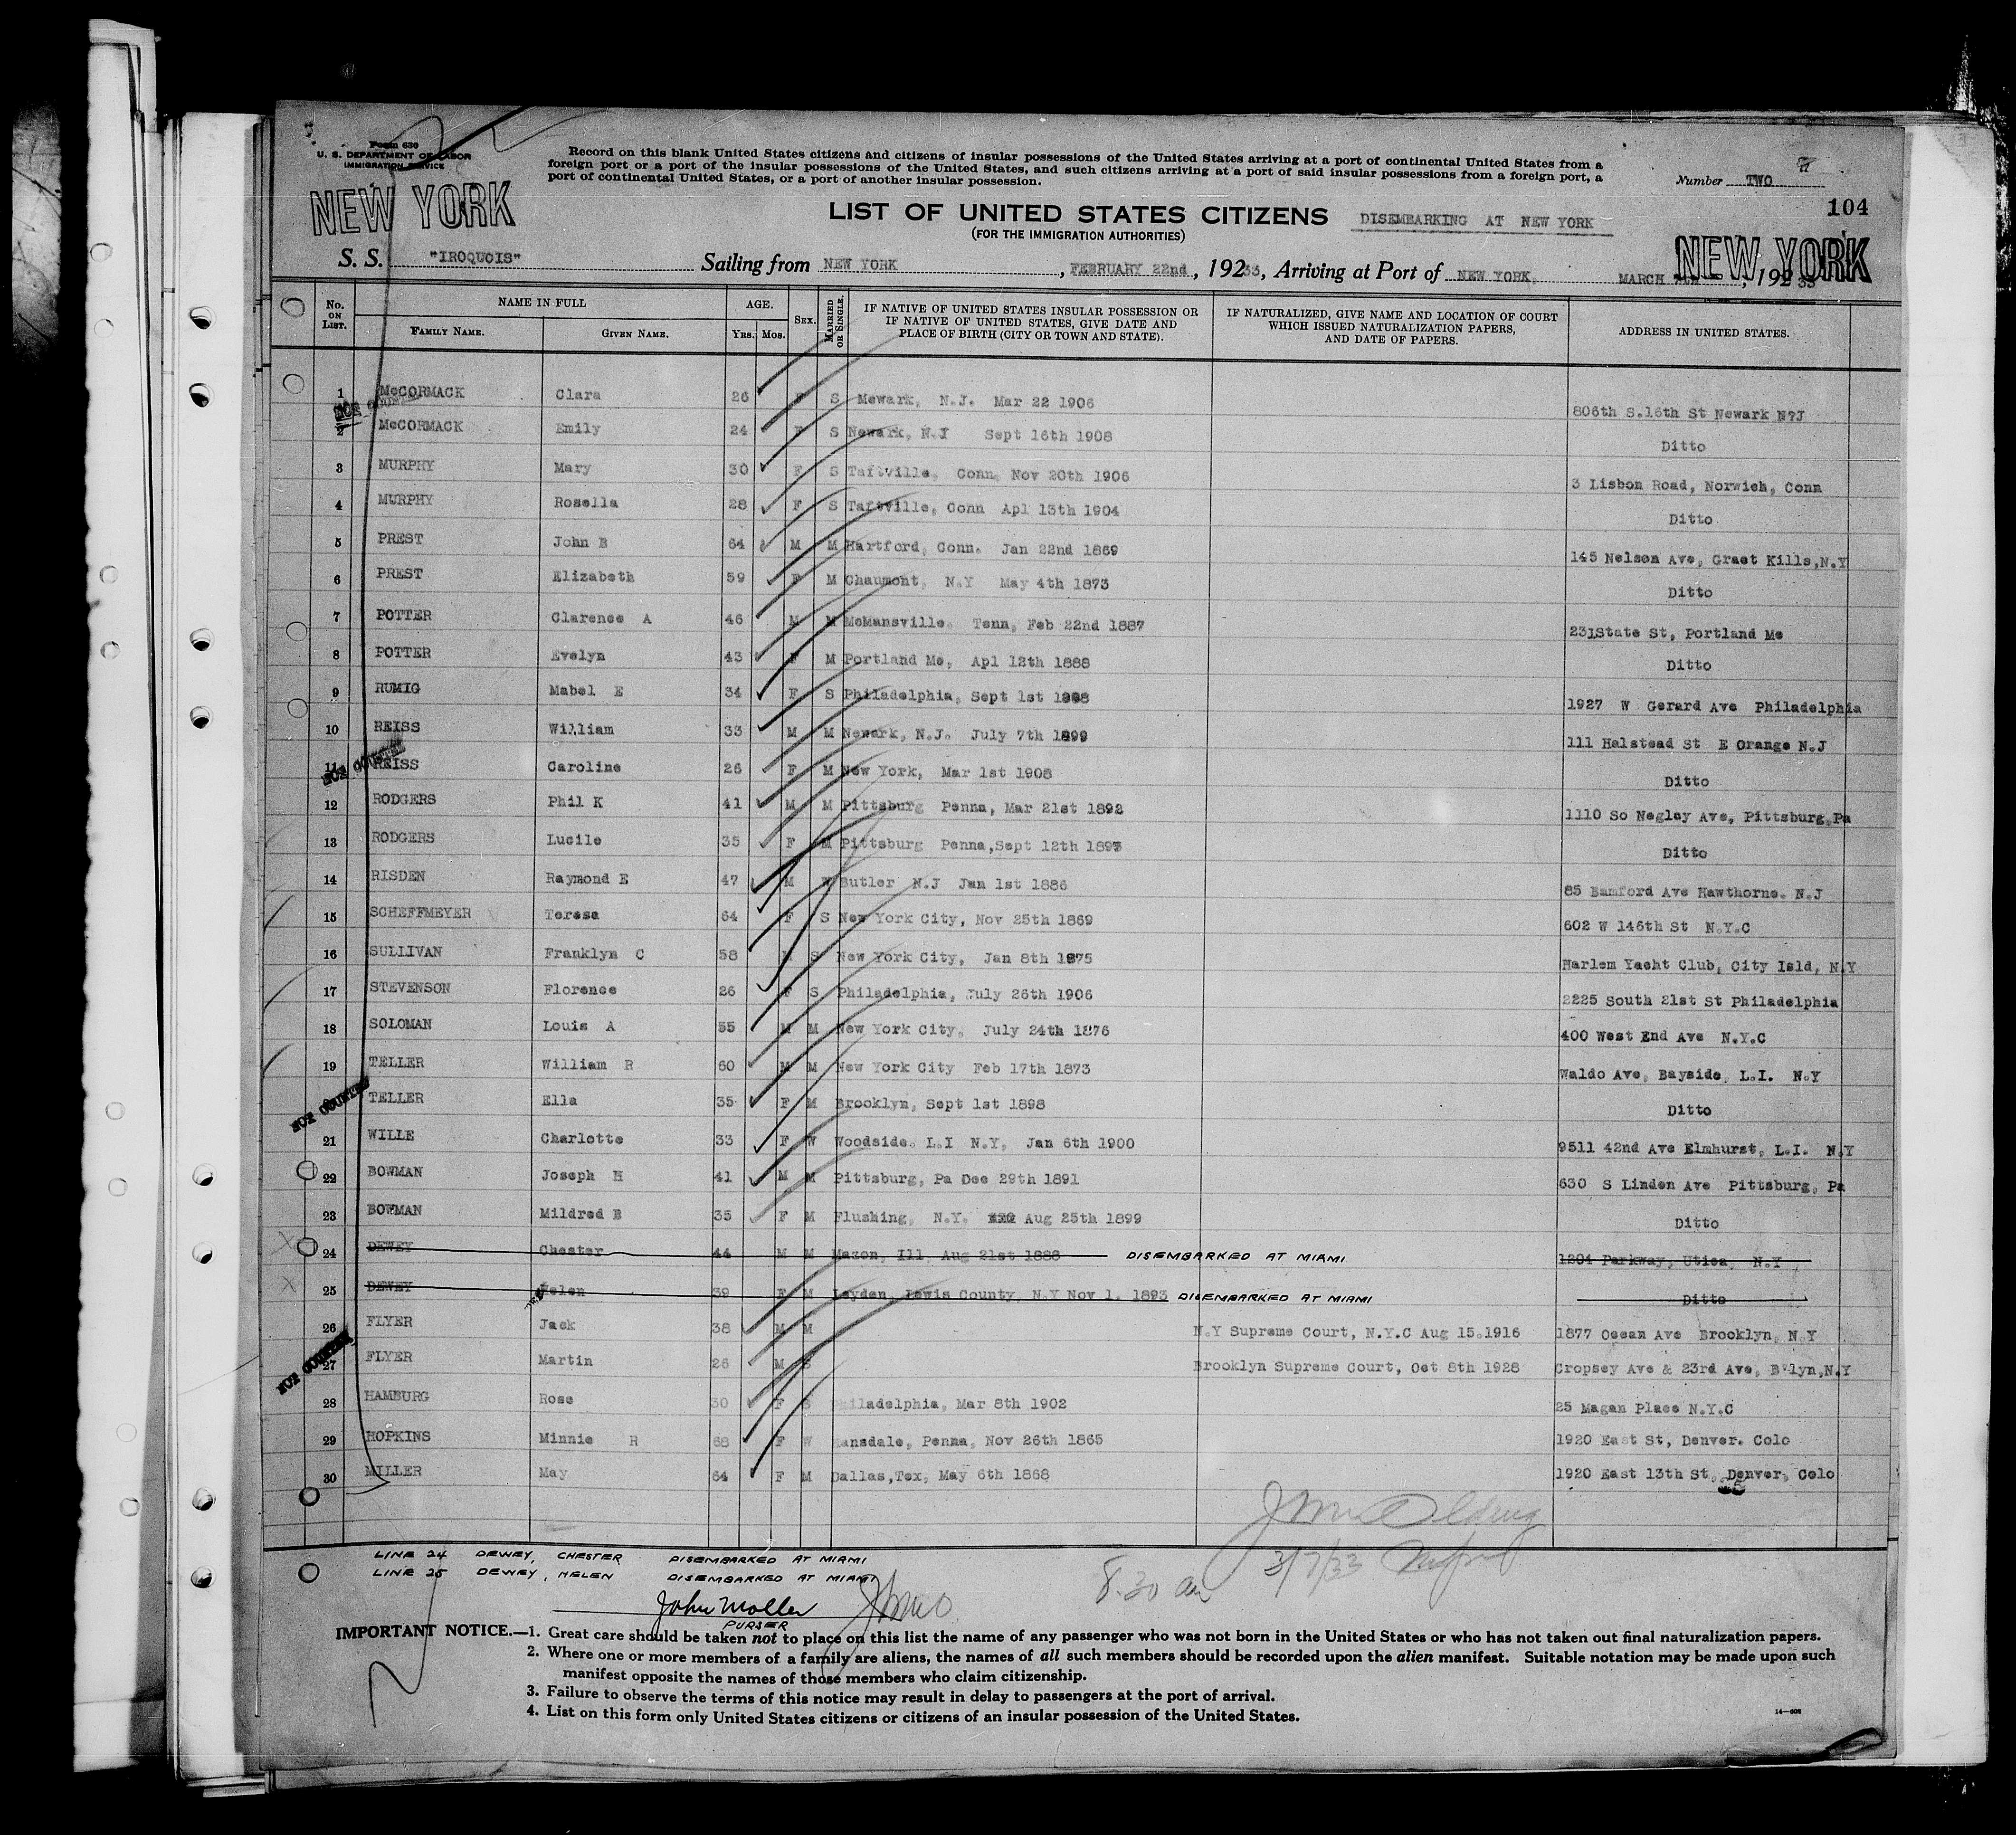 Form 630
U. S. DEPARTMENT OF LABOR
IMMIGRATION SERVICE
Record on this blank United States citizens and citizens of insular possessions of the United States arriving at a port of continental United States from a
foreign port or a port of the insular possessions of the United States, and such citizens arriving at a port of said insular possessions from a foreign port, a
port of continental United States, or a port of another insular possession.
Number TWO
104
NEW YORK
LIST OF UNITED STATES CITIZENS DISEMBARKING AT NEW YORK
(FOR THE IMMIGRATION AUTHORITIES)
NEW YORK
S. S. "IROQUOIS" Sailing from NEW YORK, FEBRUARY 22nd, 19233, Arriving at Port of NEW YORK, MARCH , 19233
No. ON LIST. NAME IN FULL AGE. SEX. MARRIED OR SINGLE. IF NATIVE OF UNITED STATES INSULAR POSSESSION OR IF NATIVE OF UNITED STATES, GIVE DATE AND PLACE OF BIRTH (CITY OR TOWN AND STATE). IF NATURALIZED, GIVE NAME AND LOCATION OF COURT WHICH ISSUED NATURALIZATION PAPERS, AND DATE OF PAPERS. ADDRESS IN UNITED STATES.
FAMILY NAME. GIVEN NAME. YRS. MOS.
1 McCORMACK Clara 26 F S Mewark, N.J. Mar 22 1906 806th S.16th St Newark N?J
NOT COUNTED
2 McCORMACK Emily 24 F S Newark, N.J Sept 16th 1908 Ditto
3 MURPHY Mary 30 F S Taftville, Conn, Nov 20th 1906 3 Lisbon Road, Norwich, Conn
4 MURPHY Rosella 28 F S Taftville, Conn Apl 13th 1904 Ditto
5 PREST John B 64 M M Hartford, Conn. Jan 22nd 1869 145 Nelson Ave, Graet Kills,N.Y
6 PREST Elizabeth 59 F M Chaumont, N.Y May 4th 1873 Ditto
7 POTTER Clarence A 46 M M McMansville. Tenn, Feb 22nd 1887 231State St, Portland Me
8 POTTER Evelyn 43 F M Portland Me, Apl 12th 1888 Ditto
9 RUMIG Mabel E 34 F S Philadelphia, Sept 1st 1898 1927 W Gerard Ave Philadelphia
10 REISS William 33 M M Newark, N.J. July 7th 1899 111 Halstead St E Orange N.J
NOT COUNTED
11 REISS Caroline 25 F M New York, Mar 1st 1908 Ditto
12 RODGERS Phil K 41 M M Pittsburg Penna, Mar 21st 1892 1110 So Negley Ave, Pittsburg,Pa
13 RODGERS Lucile 35 F M Pittsburg Penna,Sept 12th 1897 Ditto
14 RISDEN Raymond E 47 M W Butler N.J Jan 1st 1886 85 Bamford Ave Hawthorne. N.J
15 SCHEFFMEYER Teresa 64 F S New York City, Nov 25th 1869 602 W 146th St N.Y.C
16 SULLIVAN Franklyn C 58 S New York City, Jan 8th 1875 Harlem Yacht Club, City Isld, N.Y
17 STEVENSON Florence 26 F S Philadelphia, July 26th 1906 2225 South 21st St Philadelphia
18 SOLOMAN Louis A 55 M M New York City, July 24th 1876 400 West End Ave N.Y.C
19 TELLER William R 60 M M New York City Feb 17th 1873 Waldo Ave, Bayside, L.I. N.Y
NOT COUNTED
TELLER Ella 35 F M Brooklyn, Sept 1st 1898 Ditto
21 WILLE Charlotte 33 F W Woodside. L.I N.Y, Jan 6th 1900 9511 42nd Ave Elmhurst, L.I. N.Y
22 BOWMAN Joseph H 41 M M Pittsburg, Pa Dec 29th 1891 630 S Linden Ave Pittsburg, Pa
23 BOWMAN Mildred B 35 F M Flushing, N.Y. Aug 25th 1899 Ditto
24 DEWEY Chester 44 M M Mazon, Ill Aug 21st 1888 DISEMBARKED AT MIAMI 1204 Parkway, Utica, N.Y
25 DEWEY Helen 39 F M Leyden, Lewis County, N.Y Nov 1. 1893 DISEMBARKED AT MIAMI Ditto
26 FLYER Jack 38 M M N.Y Supreme Court, N.Y.C Aug 15.1916 1877 Ocean Ave Brooklyn, N.Y
NOT COUNTED
27 FLYER Martin 26 M S Brooklyn Supreme Court, Oct 8th 1928 Cropsey Ave & 23rd Ave, B'lyn,N.Y
28 HAMBURG Rose 30 F S Philadelphia, Mar 8th 1902 25 Magan Place N.Y.C
29 HOPKINS Minnie R 68 F W Lansdale, Penna, Nov 26th 1865 1920 East St, Denver. Colo
30 MILLER May 64 F M Dallas,Tex, May 6th 1868 1920 East 13th St, Denver, Colo
LINE 24 DEWEY, CHESTER DISEMBARKED AT MIAMI
LINE 25 DEWEY, HELEN DISEMBARKED AT MIAMI
8.30 am 3/7/33
John Moller
PURSER
IMPORTANT NOTICE.—1. Great care should be taken not to place on this list the name of any passenger who was not born in the United States or who has not taken out final naturalization papers.
2. Where one or more members of a family are aliens, the names of all such members should be recorded upon the alien manifest. Suitable notation may be made upon such
manifest opposite the names of those members who claim citizenship.
3. Failure to observe the terms of this notice may result in delay to passengers at the port of arrival.
4. List on this form only United States citizens or citizens of an insular possession of the United States.